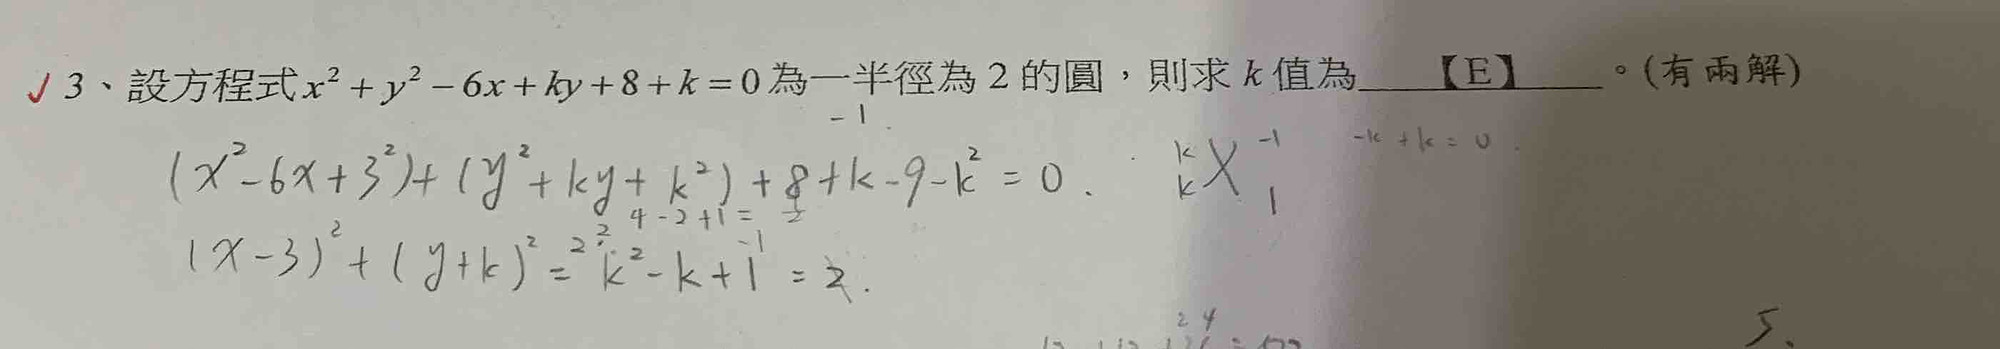 ✓ 3、設方程式 x² + y² − 6x + ky + 8 + k = 0 為一半徑為 2 的圓，則求 k 值為【E】。(有兩解)
-1
(x²-6x+3²)+(y²+ky+k²)+8+k-9-k²=0. k k -1 1 -k+k=0
4-2+1=
(x-3)²+(y+k)²=2² k²-k+1 -1 =2.
24
5.